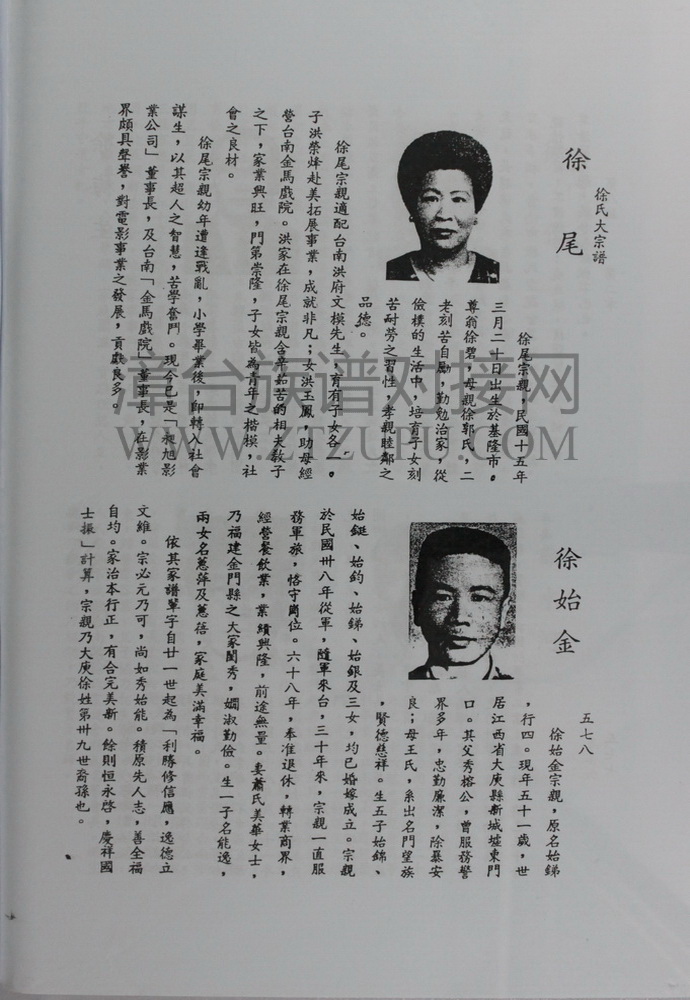 徐氏大宗譜
徐尾
徐尾宗親，民國十五年
三月二十日出生於基隆市。
尊翁徐碧，母親徐郭氏，二
老刻苦自勵，勤勉治家，從
儉樸的生活中，培育子女刻
苦耐勞之習性，孝親睦鄰之
品德。
徐尾宗親適配台南洪府文模先生，育有子女各一。
子洪榮烽赴美拓展事業，成就非凡；女洪玉鳳，助母經
營台南金馬戲院。洪家在徐尾宗親含辛茹苦的相夫教子
之下，家業興旺，門第崇隆，子女皆為青年之楷模，社
會之良材。
徐尾宗親幼年遭逢戰亂，小學畢業後，即轉入社會
謀生，以其超人之智慧，苦學奮鬥。現今已是「昶旭影
業公司」董事長，及台南「金馬戲院」董事長，在影業
界頗具聲譽，對電影事業之發展，貢獻良多。
五七八
徐始金
徐始金宗親，原名始銻
，行四。現年五十一歲，世
居江西省大庾縣新城墟東門
口。其父秀榕公，曾服務警
界多年，忠勤廉潔，除暴安
良；母王氏，系出名門望族
，賢德慈祥。生五子始錦、
始鋌、始鈞、始銻、始銀及三女，均已婚嫁成立。宗親
於民國卅八年從軍，隨軍來台，三十年來，宗親一直服
務軍旅，恪守崗位。六十八年，奉准退休，轉業商界，
經營餐飲業，業績興隆，前途無量。妻蕭氏美華女士，
乃福建金門縣之大家閨秀，嫺淑勤儉。生一子名能逸，
兩女名蕙萍及蕙蓓，家庭美滿幸福。
依其家譜輩字自廿一世起為「利勝修信應，逸德立
文維。宗必元乃可，尚如秀始能。積原先人志，善全福
自均。家治本行正，有合完美新。餘則恒永啓，慶祥國
士振」計算，宗親乃大庾徐姓第卅九世裔孫也。
漳台族谱对接网
WWW.ZTZUPU.COM